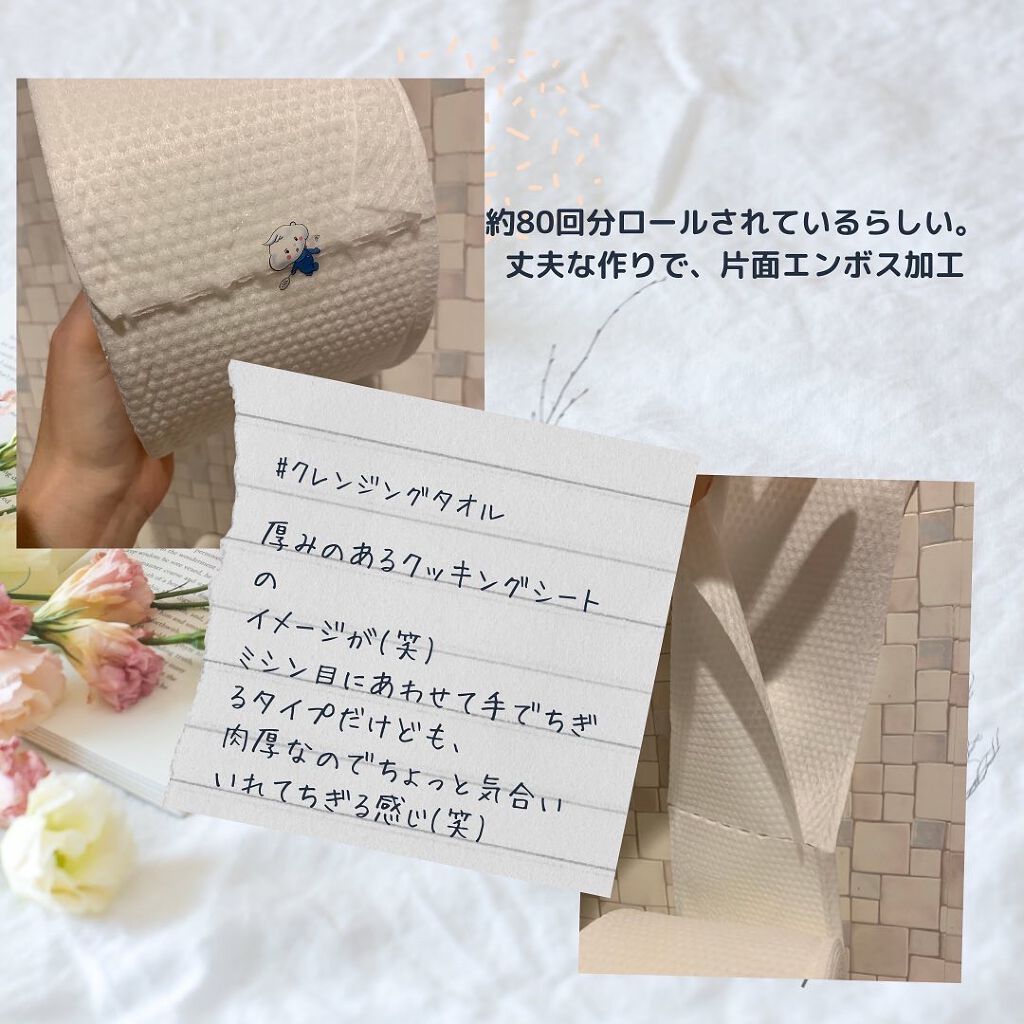 約80回分ロールされているらしい。
丈夫な作りで、片面エンボス加工
#クレンジングタオル
厚みのあるクッキングシート
の
イメージが(笑)
ミシン目にあわせて手でちぎ
るタイプだけども、
肉厚なのでちょっと気合い
いれてちぎる感じ(笑)